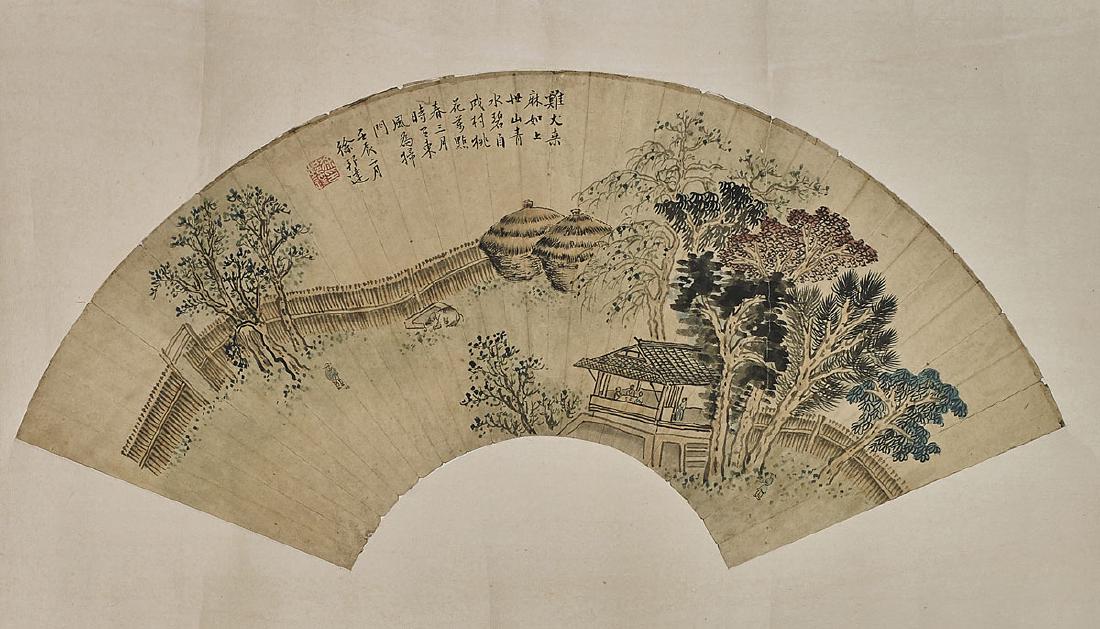 雞犬桑
麻如上
世山青
水碧自
成村桃
花萬點
春三月
時有東
風為掃
門
壬辰月
徐達